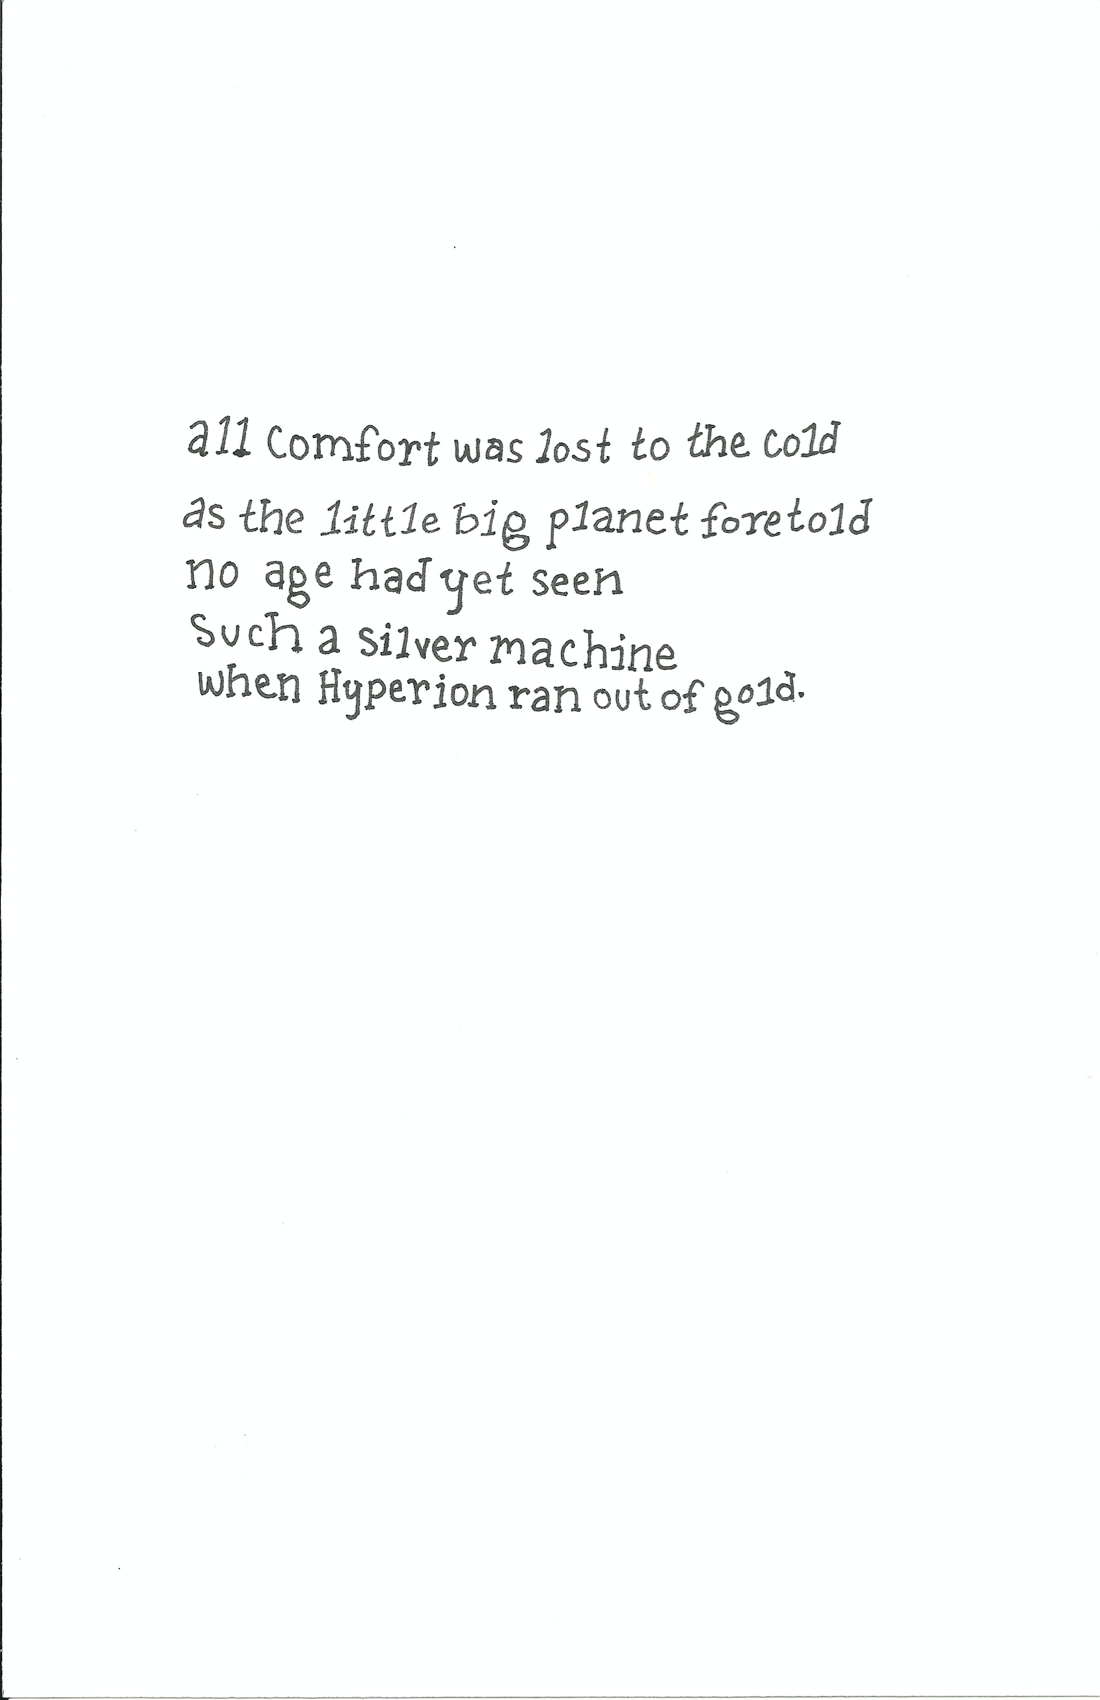 all Comfort was lost to the cold
as the little big planet foretold
no age had yet seen
Such a silver machine
when Hyperion ran out of gold.